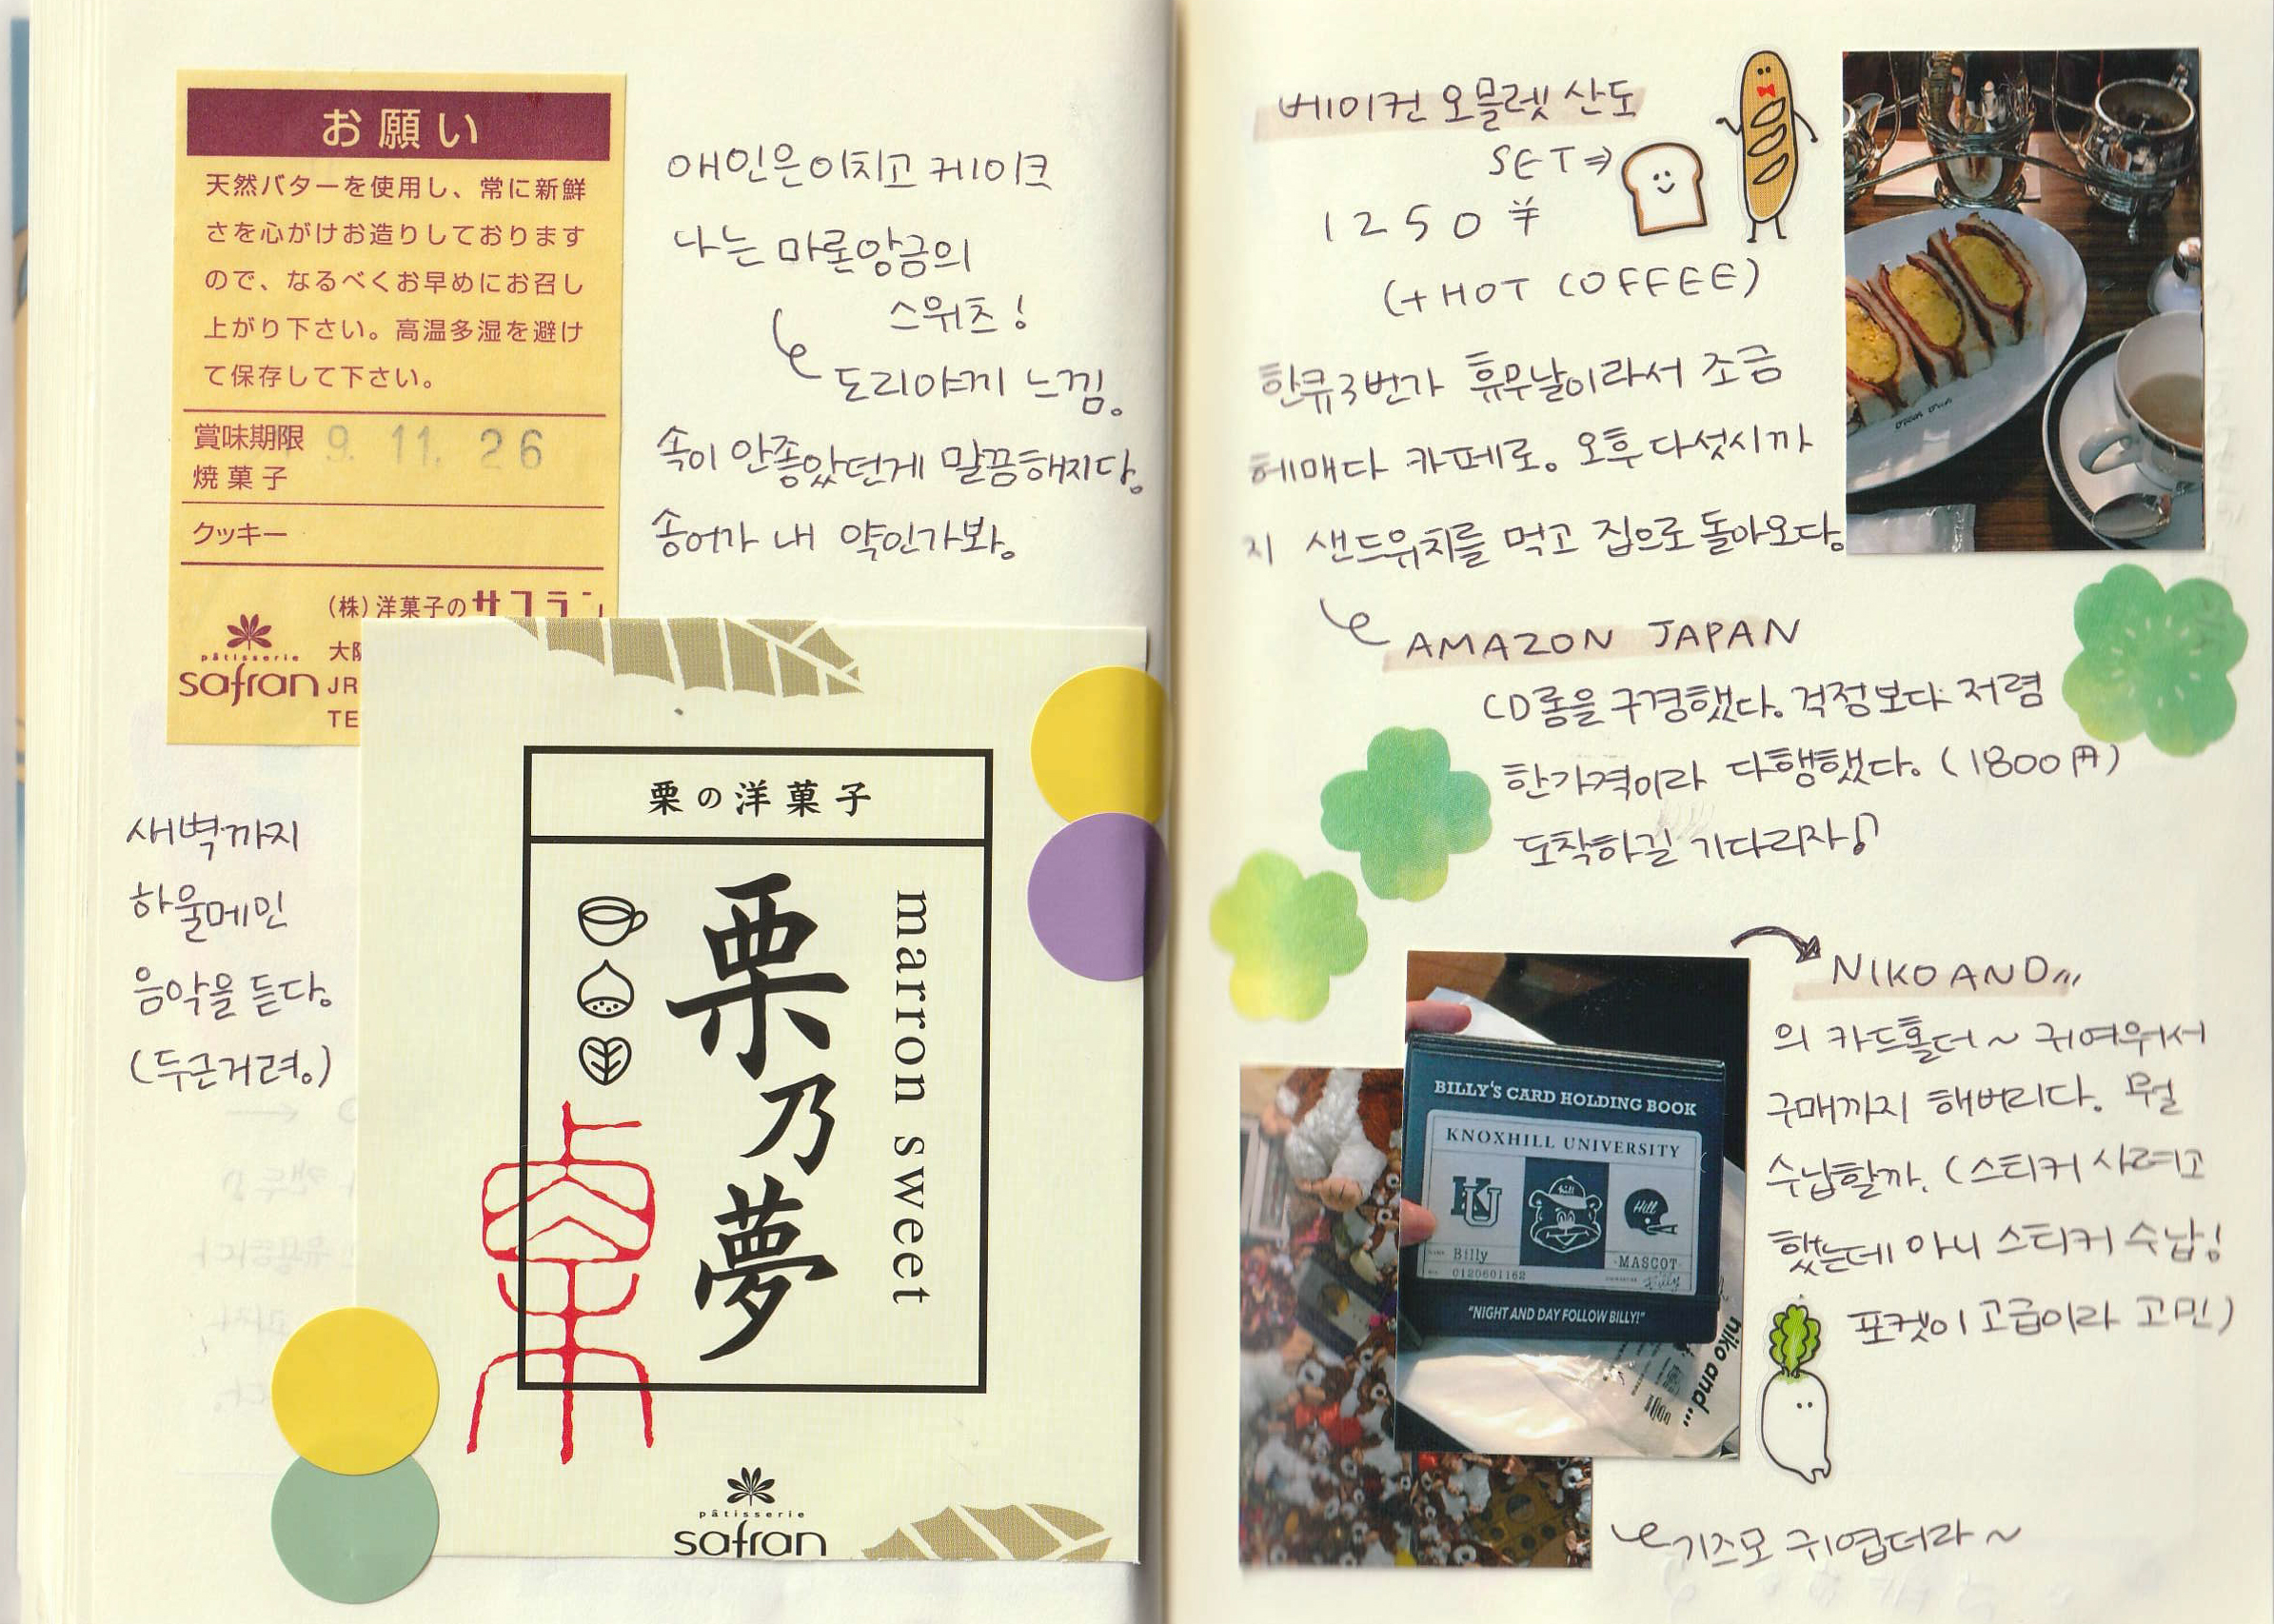 お願い
天然バターを使用し、常に新鮮
さを心がけお造りしております
ので、なるべくお早めにお召し
上がり下さい。高温多湿を避け
て保存して下さい。
賞味期限 9. 11. 26
焼菓子
クッキー
(株)洋菓子のサフラン
pâtisserie
safran
JR
TE
애인은 이치고 케이크
나는 마론앙금의
스위츠!
도리야끼 느낌。
속이 안좋았던게 말끔해지다。
송어가 내 약인가봐。
새벽까지
하울메인
음악을 듣다。
(두근거려。)
栗の洋菓子
栗乃夢
marron sweet
pâtisserie
safran
베이컨 오믈렛 산도
SET⇒
1250¥
(+HOT COFFEE)
한큐3번가 휴무날이라서 조금
헤매다 카페로。 오후 다섯시까
지 샌드위치를 먹고 집으로 돌아오다。
AMAZON JAPAN
CD롬을 구경했다。 걱정보다 저렴
한가격이라 다행했다。 (1800円)
도착하길 기다리자♪
NIKO AND...
의 카드홀더~ 귀여워서
구매까지 해버리다. 뭘
수납할까. (스티커 사려고
했는데 아니 스티커 수납!
포켓이 고급이라 고민)
BILLY'S CARD HOLDING BOOK
KNOXHILL UNIVERSITY
KU
Hill
Billy
MASCOT
0120601162
"NIGHT AND DAY FOLLOW BILLY!"
niko and...
기즈모 귀엽더라~